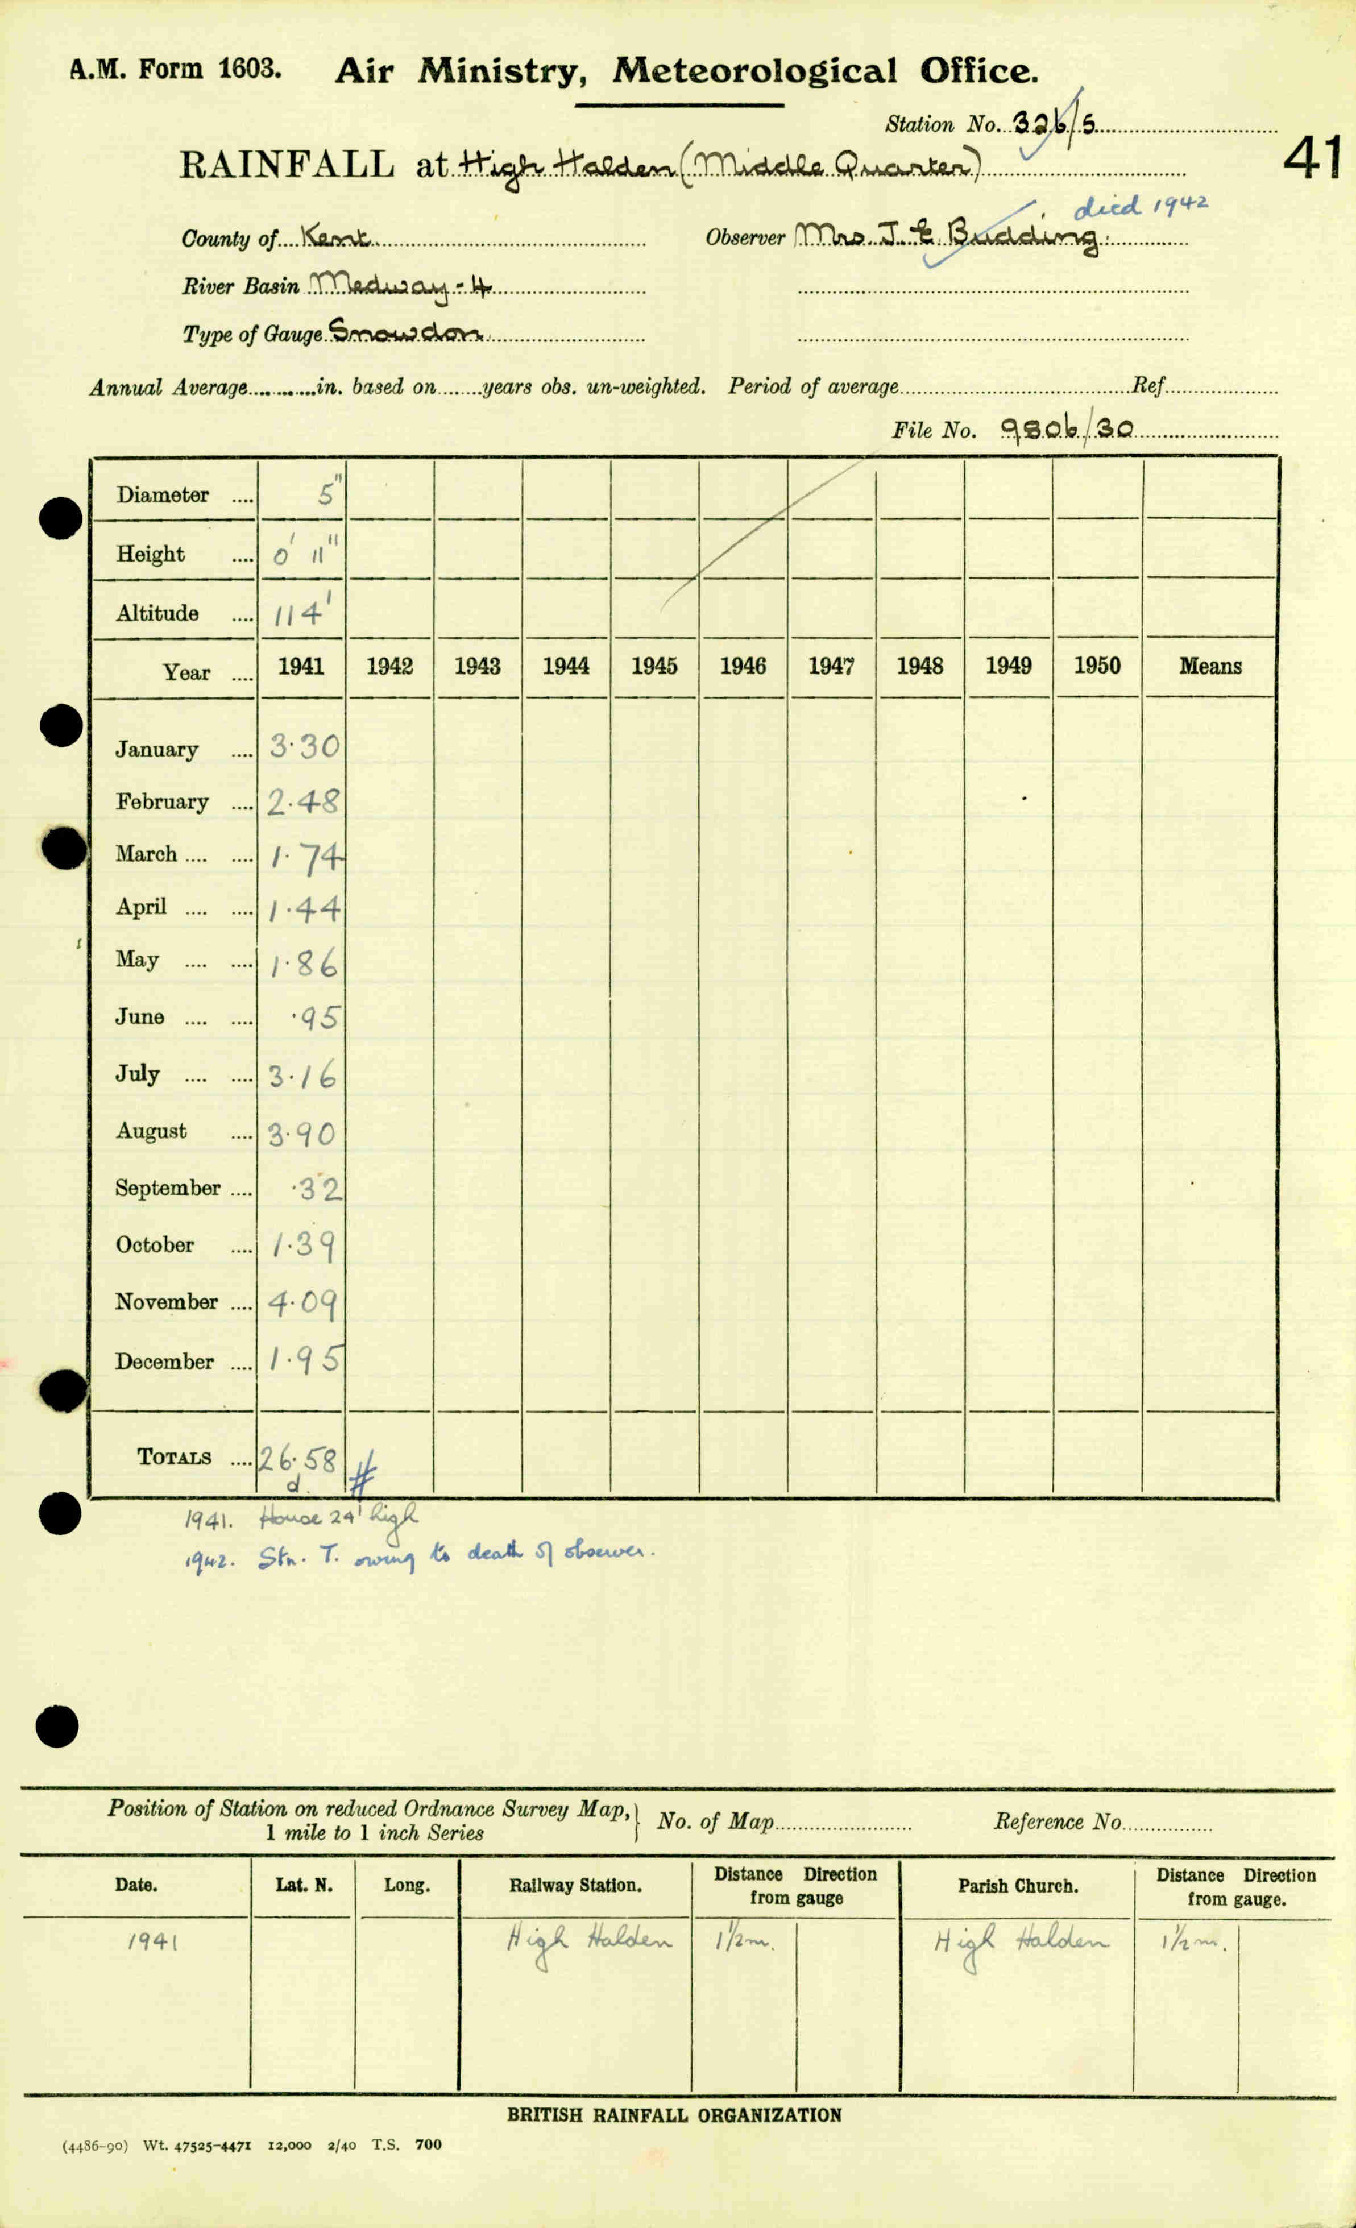 A.M. Form 1603. Air Ministry, Meteorological Office.
Station No. 326/5
41
RAINFALL at High Halden (Middle Quarter)
died 1942
County of Kent Observer Mrs J. E Budding.
River Basin Medway - 4
Type of Gauge Snowdon
Annual Average..........in. based on.......years obs. un-weighted. Period of average..........Ref..........
File No. 9806/30
Diameter .... 5"
Height .... 0' 11"
Altitude .... 114'
Year .... 1941 1942 1943 1944 1945 1946 1947 1948 1949 1950 Means
January .... 3.30
February .... 2.48
March .... .... 1.74
April .... .... 1.44
May .... .... 1.86
June .... .... .95
July .... .... 3.16
August .... 3.90
September .... .32
October .... 1.39
November .... 4.09
December .... 1.95
TOTALS .... 26.58 #
d
1941. House 24' high
1942. Stn. T. owing to death of observer.
Position of Station on reduced Ordnance Survey Map,} No. of Map.......... Reference No..........
1 mile to 1 inch Series
Date. Lat. N. Long. Railway Station. Distance Direction from gauge Parish Church. Distance Direction from gauge.
1941 High Halden 1½m. High Halden 1½m.
BRITISH RAINFALL ORGANIZATION
(4486-90) Wt. 47525-4471 12,000 2/40 T.S. 700